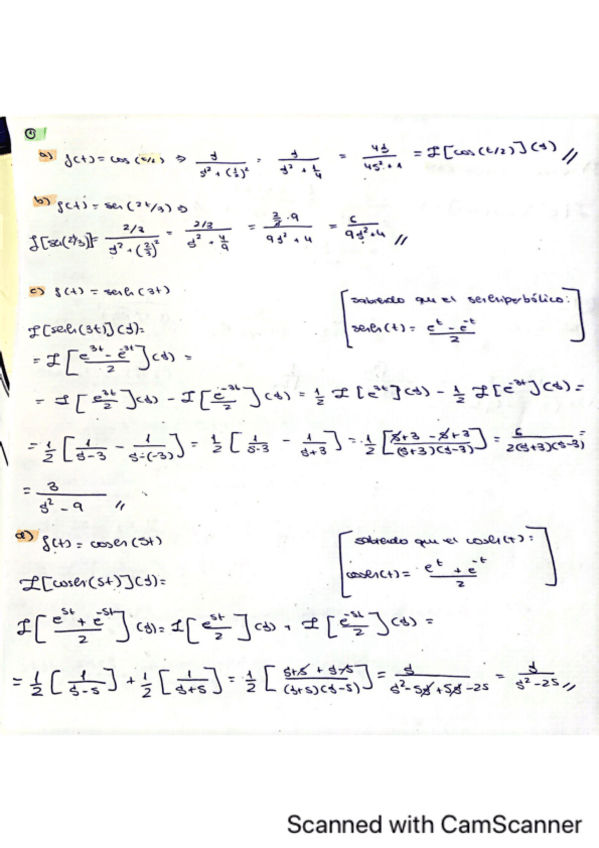 ①
a) f(t) = cos(t/2) ⇒ s / (s² + (1/2)²) = s / (s² + 1/4) = 4s / (4s² + 1) = ℒ[cos(t/2)](s) //
b) f(t) = sen(2t/3) ⇒
ℒ[sen(2t/3)] = (2/3) / (s² + (2/3)²) = (2/3) / (s² + 4/9) = (2/3 · 9) / (9s² + 4) = 6 / (9s² + 4) //
c) f(t) = senh(3t) [sabiendo que el senhiperbólico:
ℒ[senh(3t)](s) = senh(t) = (e^t - e^-t) / 2]
= ℒ[(e^3t - e^-3t) / 2](s) =
= ℒ[e^3t / 2](s) - ℒ[e^-3t / 2](s) = 1/2 ℒ[e^3t](s) - 1/2 ℒ[e^-3t](s) =
= 1/2 [1/(s-3) - 1/(s-(-3))] = 1/2 [1/(s-3) - 1/(s+3)] = 1/2 [(s+3 -s+3) / ((s+3)(s-3))] = 6 / (2(s+3)(s-3)) =
= 3 / (s² - 9) //
d) f(t) = cosh(5t) [sabiendo que el cosh(t):
ℒ[cosh(5t)](s) = cosh(t) = (e^t + e^-t) / 2]
ℒ[(e^5t + e^-5t) / 2](s) = ℒ[e^5t / 2](s) + ℒ[e^-5t / 2](s) =
= 1/2 [1/(s-5)] + 1/2 [1/(s+5)] = 1/2 [(s+5 + s-5) / ((s+5)(s-5))] = s / (s² -5s +5s -25) = s / (s² - 25) //
Scanned with CamScanner